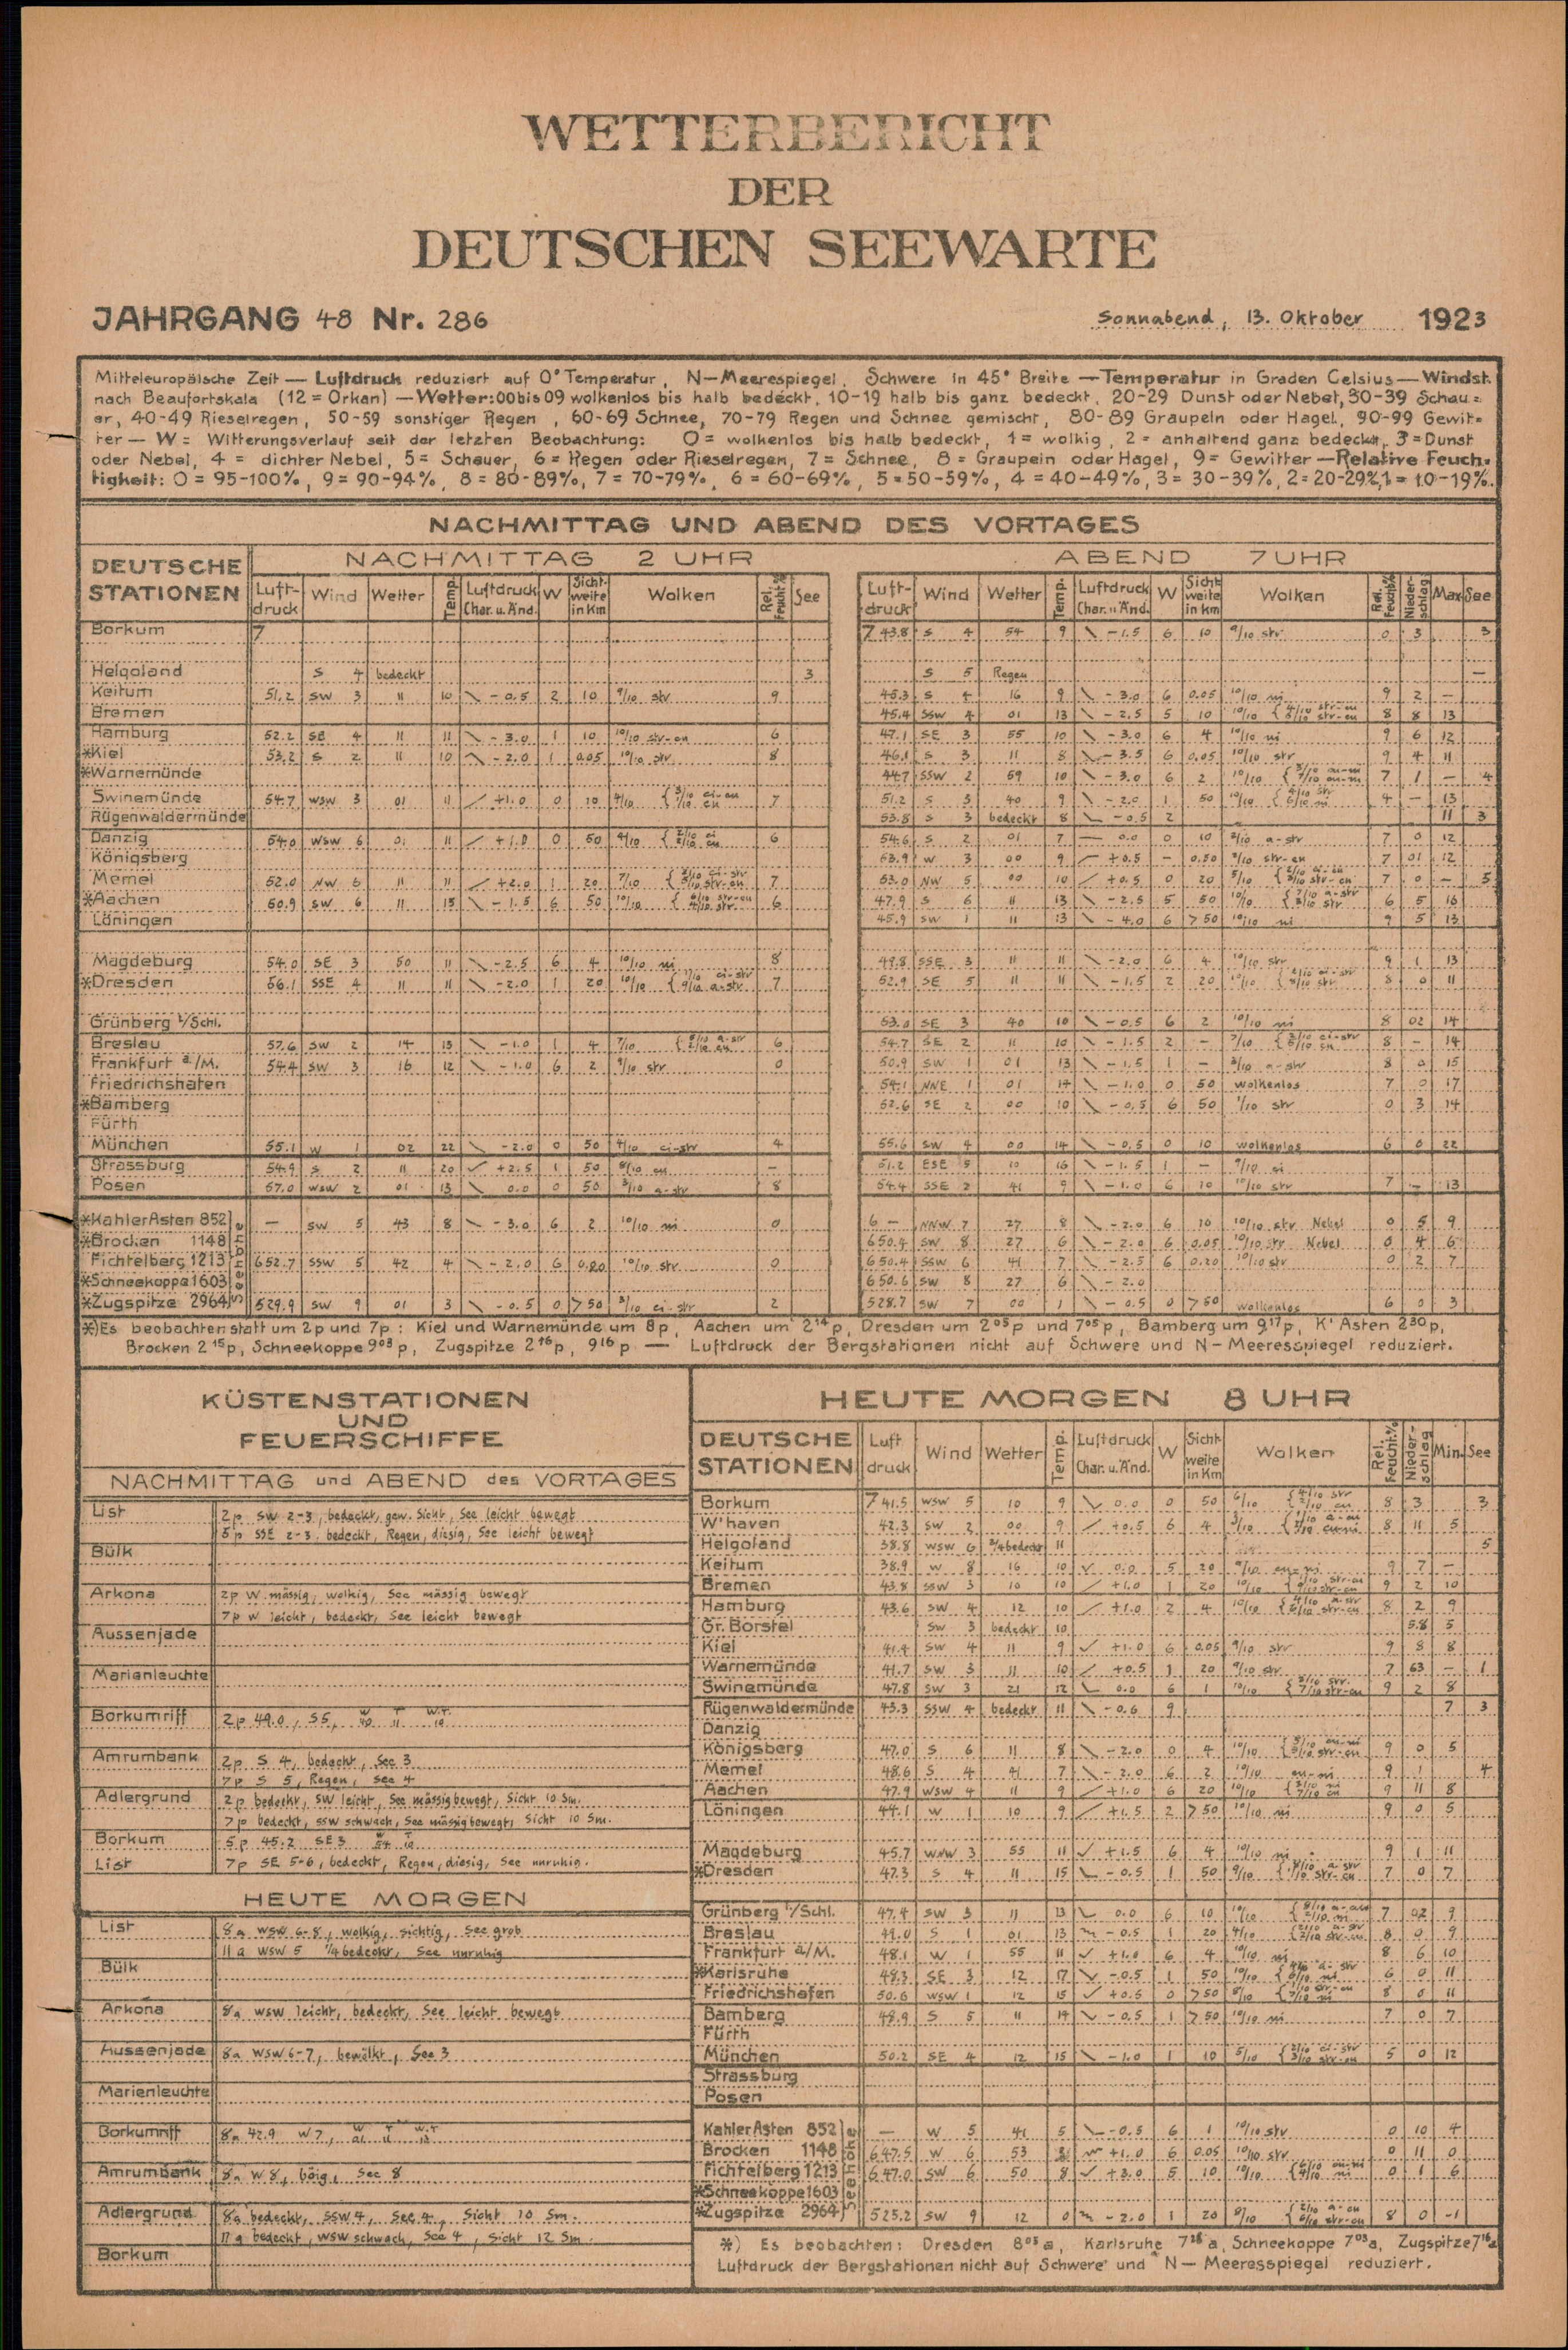 WETTERBERICHT
DER
DEUTSCHEN SEEWARTE
JAHRGANG 48 Nr. 286 Sonnabend, 13. Oktober 1923
Mitteleuropäische Zeit — Luftdruck reduziert auf 0° Temperatur, N—Meerespiegel, Schwere in 45° Breite — Temperatur in Graden Celsius — Windst.
nach Beaufortskala (12 = Orkan) — Wetter: 00 bis 09 wolkenlos bis halb bedeckt, 10-19 halb bis ganz bedeckt, 20-29 Dunst oder Nebel, 30-39 Schau=
er, 40-49 Rieselregen, 50-59 sonstiger Regen, 60-69 Schnee, 70-79 Regen und Schnee gemischt, 80-89 Graupeln oder Hagel, 90-99 Gewit=
ter — W = Witterungsverlauf seit der letzten Beobachtung: 0 = wolkenlos bis halb bedeckt, 1 = wolkig, 2 = anhaltend ganz bedeckt, 3 = Dunst
oder Nebel, 4 = dichter Nebel, 5 = Schauer, 6 = Regen oder Rieselregen, 7 = Schnee, 8 = Graupeln oder Hagel, 9 = Gewitter — Relative Feuch=
tigkeit: 0 = 95-100%, 9 = 90-94%, 8 = 80-89%, 7 = 70-79%, 6 = 60-69%, 5 = 50-59%, 4 = 40-49%, 3 = 30-39%, 2 = 20-29%, 1 = 10-19%.
NACHMITTAG UND ABEND DES VORTAGES
DEUTSCHE STATIONEN
NACHMITTAG 2 UHR ABEND 7 UHR
Luft-druck Wind Wetter Temp. Luftdruck Char. u. Änd. W Sicht-weite in Km Wolken Rel. Feucht% See
Luft-druck Wind Wetter Temp. Luftdruck Char. u. Änd. W Sicht-weite in km Wolken Rel. Feucht% Nieder-schlag Max See
Borkum 7 743.8 S 4 54 9 \ -1.5 6 10 9/10 str 0 3 3
Helgoland S 4 bedeckt 3 S 5 Regen —
Keitum 51.2 SW 3 11 10 \ -0.5 2 10 9/10 str 9 45.3 S 4 16 9 \ -3.0 6 0.05 10/10 ni 9 2 —
Bremen 45.4 SSW 4 01 13 \ -2.5 5 10 10/10 8 8 13
Hamburg 52.2 SE 4 11 11 \ -3.0 1 10 10/10 str-cu 6 47.1 SE 3 55 10 \ -3.0 6 4 10/10 ni 9 6 12
*Kiel 53.2 S 2 11 10 \ -2.0 1 0.05 10/10 str 8 46.1 S 3 11 8 \ -3.5 6 0.05 10/10 str 9 4 11
*Warnemünde 44.7 SSW 2 59 10 \ -3.0 6 2 10/10 7 1 — 4
Swinemünde 54.7 WSW 3 01 11 / +1.0 0 10 4/10 { 3/10 ci-cu 1/10 cu 7 51.2 S 3 40 9 \ -2.0 1 50 10/10 { 4/10 str 6/10 ni 4 — 13
Rügenwaldermünde 53.8 S 3 bedeckt 8 \ -0.5 2 11 3
Danzig 54.0 WSW 6 01 11 / +1.0 0 50 4/10 { 2/10 ci 2/10 cu 6 54.6 S 2 01 7 — 0.0 0 10 2/10 a-str 7 0 12
Königsberg 53.9 W 3 00 9 / +0.5 — 0.50 str-cu 7 01 12
Memel 52.0 NW 6 11 11 / +2.0 1 20 7/10 7 53.0 NW 5 00 10 / +0.5 0 20 5/10 7 0 — 5
*Aachen 50.9 SW 6 11 15 \ -1.5 6 50 10/10 6 47.9 S 6 11 13 \ -2.5 5 50 10/10 6 5 16
Löningen 45.9 SW 1 11 13 \ -4.0 6 >50 10/10 ni 9 5 13
Magdeburg 54.0 SE 3 50 11 \ -2.5 6 4 10/10 ni 8 49.8 SSE 3 11 11 \ -2.0 6 4 10/10 str 9 1 13
*Dresden 56.1 SSE 4 11 11 \ -2.0 1 20 10/10 { 1/10 ci-str 9/10 a-str 7 52.9 SE 5 11 11 \ -1.5 2 20 10/10 8 0 11
Grünberg i/Schl. 53.0 SE 3 40 10 \ -0.5 6 2 10/10 ni 8 02 14
Breslau 57.6 SW 2 14 13 \ -1.0 1 4 7/10 6 54.7 SE 2 11 10 \ -1.5 2 — 7/10 8 — 14
Frankfurt a/M. 54.4 SW 3 16 12 \ -1.0 6 2 9/10 str 0 50.9 SW 1 01 13 \ -1.5 1 — a-str 8 0 15
Friedrichshafen 54.1 NNE 1 01 14 \ -1.0 0 50 wolkenlos 7 0 17
*Bamberg 52.6 SE 2 00 10 \ -0.5 6 50 1/10 str 0 3 14
Fürth
München 55.1 W 1 02 22 \ -2.0 0 50 4/10 ci-str 4 55.6 SW 4 00 14 \ -0.5 0 10 wolkenlos 6 0 22
Strassburg 54.9 S 2 11 20 +2.5 1 50 8/10 cu — 51.2 ESE 5 10 16 \ -1.5 1 — 9/10 ci
Posen 57.0 WSW 2 01 13 \ 0.0 0 50 3/10 a-str 8 54.4 SSE 2 41 9 \ -1.0 6 10 10/10 str 7 — 13
Seehöhe
*Kahler Asten 852 — SW 5 43 8 \ -3.0 6 2 10/10 ni 0 6 — NNW 7 27 8 \ -2.0 6 10 10/10 str Nebel 0 5 9
*Brocken 1148 650.4 SW 8 27 6 \ -2.0 6 0.05 10/10 str Nebel 0 4 6
Fichtelberg 1213 652.7 SSW 5 42 4 \ -2.0 6 0.20 10/10 str 0 650.4 SSW 6 41 7 \ -2.5 6 0.20 10/10 str 0 2 7
*Schneekoppe 1603 650.6 SW 8 27 6 \ -2.0
*Zugspitze 2964 529.9 SW 9 01 3 \ -0.5 0 >50 3/10 ci-str 2 528.7 SW 7 00 1 \ -0.5 0 >50 wolkenlos 6 0 3
*) Es beobachten statt um 2p und 7p: Kiel und Warnemünde um 8p, Aachen um 2¹⁴p, Dresden um 2⁰⁵p und 7⁰⁵p, Bamberg um 9¹⁷p, K' Asten 2³⁰p,
Brocken 2¹⁵p, Schneekoppe 9⁰³p, Zugspitze 2¹⁶p, 9¹⁶p — Luftdruck der Bergstationen nicht auf Schwere und N—Meeresspiegel reduziert.
KÜSTENSTATIONEN
UND
FEUERSCHIFFE
NACHMITTAG und ABEND des VORTAGES
List 2p SW 2-3, bedeckt, gew. Sicht, See leicht bewegt
5p SSE 2-3. bedeckt, Regen, diesig, See leicht bewegt
Bülk
Arkona 2p W mässig, wolkig, See mässig bewegt
7p W leicht, bedeckt, See leicht bewegt
Aussenjade
Marienleuchte
Borkumriff 2p 49.0, S5, W 40 T 11 W.T. 14
Amrumbank 2p S 4, bedeckt, See 3
7p S 5, Regen, See 4
Adlergrund 2p bedeckt, SW leicht, See mässig bewegt, Sicht 10 Sm.
7p bedeckt, SSW schwach, See mässig bewegt, Sicht 10 Sm.
Borkum 5p 45.2 SE 3 W 54 T 10
List 7p SE 5-6, bedeckt, Regen, diesig, See unruhig.
HEUTE MORGEN
List 8a WSW 6-8, wolkig, sichtig, See grob
11a WSW 5 1/4 bedeckt, See unruhig
Bülk
Arkona 8a WSW leicht, bedeckt, See leicht bewegt
Aussenjade 8a WSW 6-7, bewölkt, See 3
Marienleuchte
Borkumriff 8a 42.9 W 7, W T 11 W.T
Amrumbank 8a W 8, böig, See 8
Adlergrund 8a bedeckt, SSW 4, See 4, Sicht 10 Sm.
11a bedeckt, WSW schwach, See 4, Sicht 12 Sm.
Borkum
HEUTE MORGEN 8 UHR
DEUTSCHE STATIONEN Luft druck Wind Wetter Temp. Luftdruck Char. u. Änd. W Sicht-weite in Km Wolken Rel. Feucht.% Nieder-schlag Min. See
Borkum 741.5 WSW 5 10 9 0.0 0 50 6/10 { 4/10 str 2/10 cu 8 3 3
W'haven 42.3 SW 2 00 9 / +0.5 6 4 3/10 8 11 5
Helgoland 38.8 WSW 6 3/4 bedeckt 11 5
Keitum 38.9 W 8 16 10 0.0 5 20 9/10 cu-ni 9 7 —
Bremen 43.8 SSW 3 10 10 / +1.0 1 20 10/10 9 2 10
Hamburg 43.6 SW 4 12 10 / +1.0 2 4 10/10 8 2 9
Gr. Borstel SW 3 bedeckt 10 5.8 5
Kiel 41.4 SW 4 11 9 +1.0 6 0.05 9/10 str 9 8 8
Warnemünde 41.7 SW 3 11 10 / +0.5 1 20 9/10 str 7 63 — 1
Swinemünde 47.8 SW 3 21 12 0.0 6 1 10/10 { 3/10 str 7/10 str-cu 9 2 8
Rügenwaldermünde 43.3 SSW 4 bedeckt 11 \ -0.6 9 7 3
Danzig
Königsberg 47.0 S 6 11 8 \ -2.0 0 4 10/10 9 0 5
Memel 48.6 S 4 41 7 \ -2.0 6 2 10/10 cu-ni 9 1 4
Aachen 47.9 WSW 4 11 9 / +1.0 6 20 10/10 9 11 8
Löningen 44.1 W 1 10 9 / +1.5 2 >50 10/10 ni 9 0 5
Magdeburg 45.7 WNW 3 55 11 +1.5 6 4 10/10 ni 9 1 11
*Dresden 47.3 S 4 11 15 -0.5 1 50 9/10 7 0 7
Grünberg i/Schl. 47.4 SW 3 11 13 0.0 6 10 10/10 7 02 9
Breslau 49.0 S 1 01 13 -0.5 1 20 4/10 8 0 9
Frankfurt a/M. 48.1 W 1 55 11 +1.0 6 4 10/10 ni 8 6 10
*Karlsruhe 49.3 SE 3 12 17 -0.5 1 50 10/10 6 0 11
Friedrichshafen 50.6 WSW 1 12 15 +0.5 0 >50 8/10 8 0 11
Bamberg 49.9 S 5 11 14 -0.5 1 >50 10/10 ni 7 0 7
Fürth
München 50.2 SE 4 12 15 \ -1.0 1 10 5/10 { 2/10 ci-str 3/10 str-cu 5 0 12
Strassburg
Posen
Seehöhe
Kahler Asten 852 — W 5 41 5 -0.5 6 1 10/10 str 0 10 4
Brocken 1148 647.5 W 6 53 +1.0 6 0.05 10/10 str 0 11 0
Fichtelberg 1213 647.0 SW 6 50 8 +3.0 5 10 10/10 0 1 6
*Schneekoppe 1603
*Zugspitze 2964 525.2 SW 9 12 0 -2.0 1 20 8/10 { 2/10 a-cu 6/10 str-cu 8 0 -1
*) Es beobachten: Dresden 8⁰⁵a, Karlsruhe 7²⁸a, Schneekoppe 7⁰³a, Zugspitze 7¹⁶a
Luftdruck der Bergstationen nicht auf Schwere und N—Meeresspiegel reduziert.